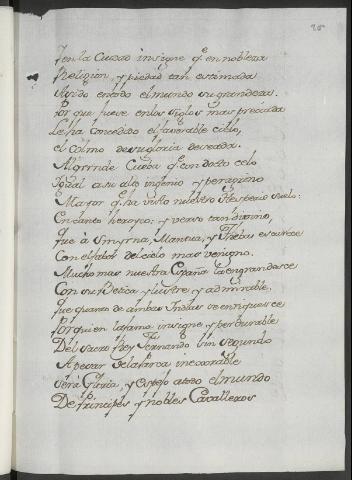 25
Y en la Ciudad insigne q.e en nobleza
Religion, y piedad tan estimada
Ha sido en todo el mundo su grandeza.
Por que fuese en los siglos mas preciada
Le ha concedido el favorable cielo,
el colmo de su gloria deseada.
Al grande Cueba q.e con docto celo
Ygual a su alto ingenio y peregrino
Mayor q.e ha visto nuestro Hesperio suelo:
En canto heroyco: y verso tan divino,
que à Smyrna, Mantua, y Thebas escurece
Con el fabor del cielo mas venigno.
Mucho mas nuestra España la engrandece
Con su Betica y lustre y admirable,
que quanto de ambas Indias se enriquece
Por quien la fama insigne y perdurable
Del Sacro Rey Fernando sin segundo
A pesar de la Parca inexorable
Será Gloria, y Espejo a todo el mundo
De Principes y nobles Cavalleros